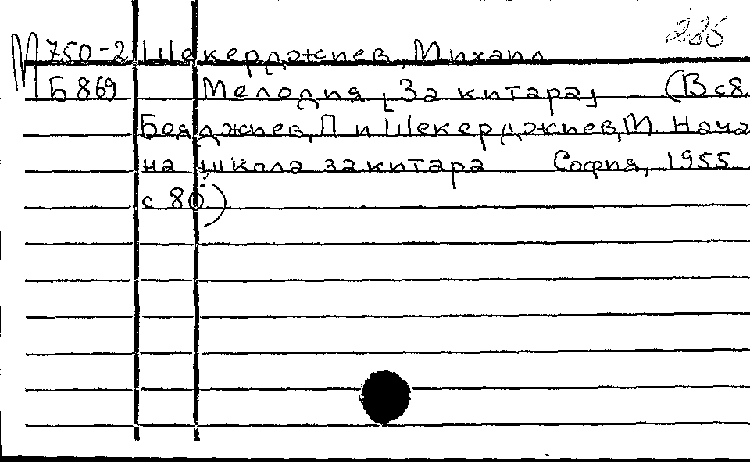 235
М 750-2 Шекерджиев, Михаил
Б 869 Мелодия [За китара] (В сб.
Бояджиев, П и Шекерджиев, М. Нача
на школа за китара София, 1955
с 80)